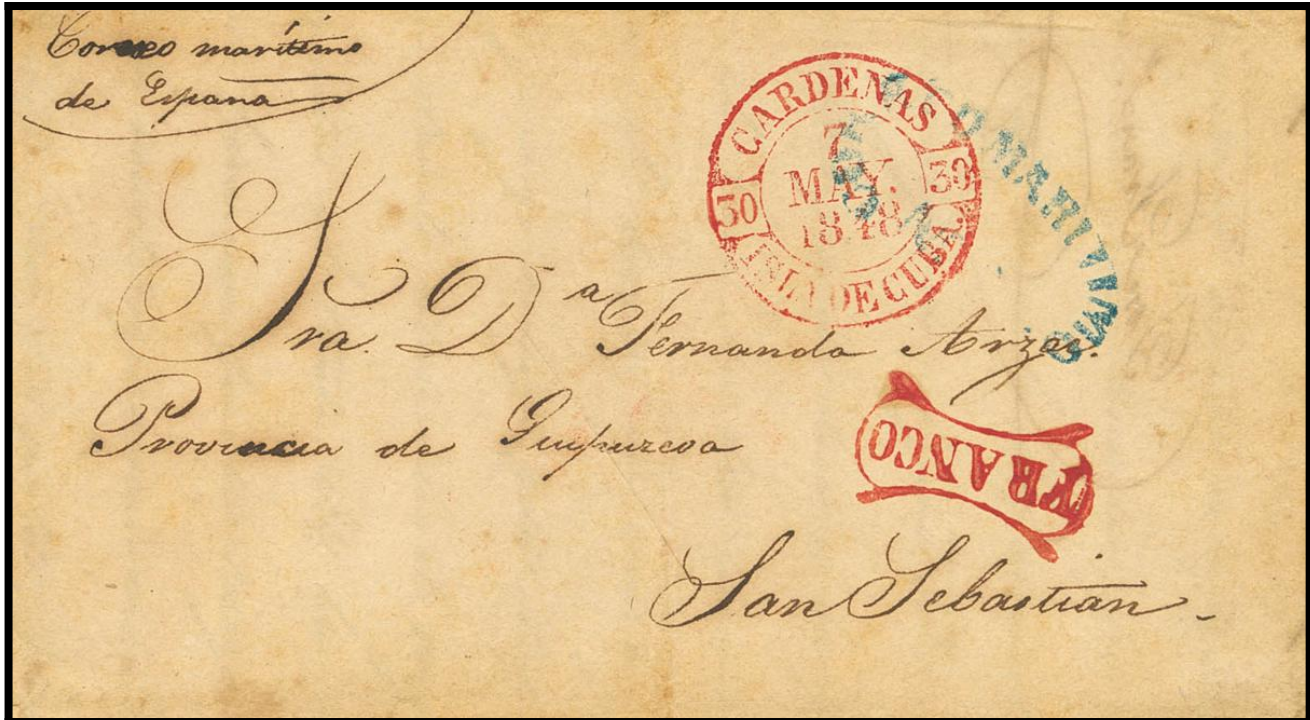 Correo marítimo
de España
CARDENAS
7
MAY.
1848
30
30
ISLA DE CUBA.
Sra. Dª Fernanda Arzac.
Provincia de Guipuzcoa
FRANCO
San Sebastian.